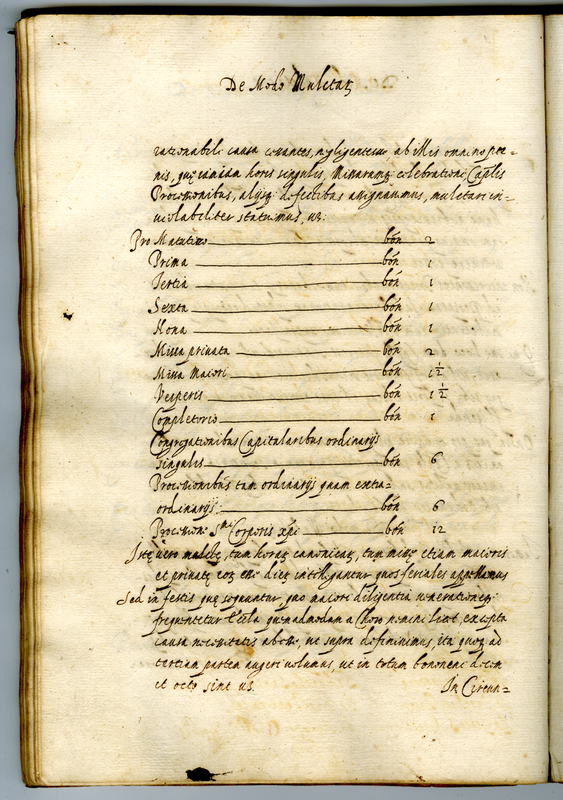 De Modo Mulctaꝝ
rationabili causa cessantes, negligentesve ab illis omnino poe=
nis, quę eanıdem horis singulis, Missarumq; celebrationi Caplis
Processionibus, alijsq; defectibus assignauimus, mulctari in=
uiolabiliter statuimus, uz:
Pro Matutino bón 2
Prima bón 1
Tertia bón 1
Sexta bón 1
Nona bón 1
Missa priuata bón 2
Missa Maiori bón 1 1/2
Vesperis bón 1 1/2
Completorio bón 1
Congregationibus Capitularibus ordinarijs
singulis bón 6
Processionibus tam ordinarijs quam extra=
ordinarijs: bón 6
Processione Smi Corporis xpi bón 12
Istę uero mulctę, tum horaꝝ canonicaꝝ, tum missę etiam maioris
et priuatę eoꝝ esse dieꝝ intelligantur quos feriales appellamus
Sed in festis quę sequuntur, quo maiori diligentia uenerationeq;
frequentetur Eccla quemadmodum a Choro nemini licet, excepta
causa necessitatis abesse, ut supra definiuimus, ita quoq; ad
tertiam partem augeri uolumus, ut in totum bononeni decem
et octo sint uz. In Circun=